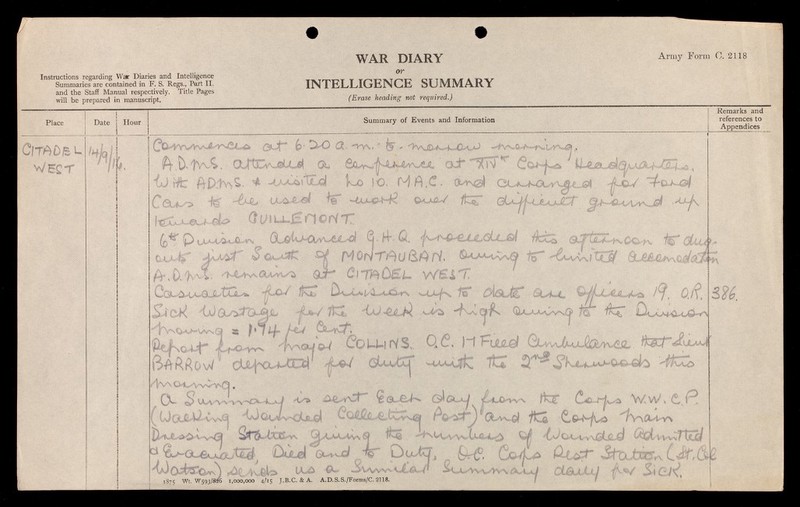 WAR DIARY
or
INTELLIGENCE SUMMARY
(Erase heading not required.)
Army Form C. 2118
Instructions regarding War Diaries and Intelligence
Summaries are contained in F. S. Regs., Part II.
and the Staff Manual respectively. Title Pages
will be prepared in manuscript.
Place
Date
Hour
Summary of Events and Information
Remarks and
references to
Appendices
CITADEL
WEST
14/9/16.
Commences at 6.20 a.m. to-morrow morning.
A.D.M.S. attended a Conference at XIVth Corps Headquarters.
With ADMS. visited No 10. M.A.C. and arranged for Ford
Cars to be used to work over the difficult ground up
towards GUILLEMONT.
6th Division Advanced G.H.Q. proceeded this afternoon to dug-
outs just South of MONTAUBAN. Owing to limited accomodation
A.D.M.S. remains at CITADEL WEST.
Casualties for the Division up to date are Officers 19. O.R. 386.
Sick Wastage for the week is high owing to the Division
moving = 1.94 per Cent.
Report from Major COLLINS. O.C. 17 Field Ambulance that Lieut
BARROW departed for duty with the 2nd Sherwoods this
morning.
A Summary is sent each day from the Corps W.W.C.P.
(Walking Wounded Collecting Post) and the Corps Main
Dressing Station giving the numbers of Wounded admitted
Evacuated, Died and to Duty. O.C. Corps Rest Station (Lt. Col
Watson) sends us a Similar Summary daily for Sick.
1875 Wt. W593/826 1,000,000 4/15 J.B.C. & A. A.D.S.S./Forms/C. 2118.